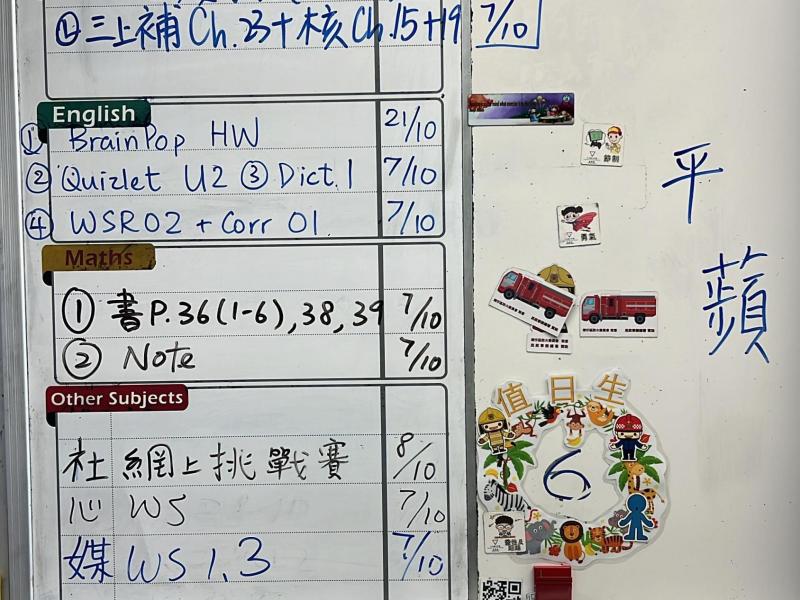 ② 三上補 Ch.23 + 核 Ch.15+19 7/10
English
① BrainPop HW 21/10
② Quizlet U2 ③ Dict.1 7/10
④ WSR02 + Corr 01 7/10
Maths
① 書 P.36(1-6),38,39 7/10
② Note 7/10
Other Subjects
社 網上挑戰賽 8/10
心 WS 7/10
媒 WS 1.3 7/10
節制
勇氣
平
蘋
值日生
6